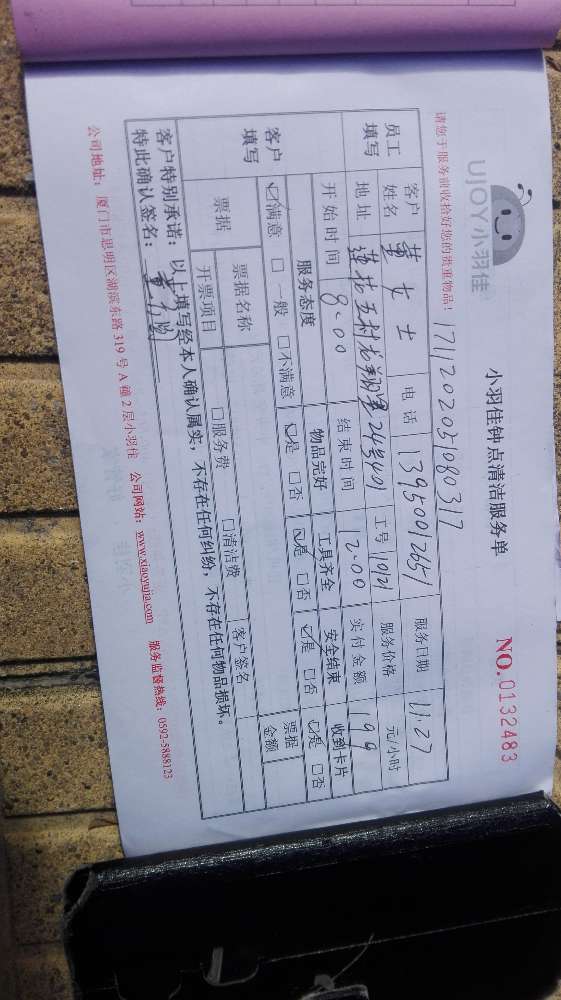 UJOY小羽佳
小羽佳钟点清洁服务单
NO.0132483
请您于服务前收拾好您的贵重物品！
1711202051080317
员工填写
客户姓名 董女士 电话 13950012651 服务日期 11.27
地址 莲花五村龙翔里24号401 工号 10121 服务价格 元/小时
开始时间 8:00 结束时间 12:00 实付金额 199
客户填写
服务态度 物品完好 工具齐全 安全结束 收到卡片
☑满意 □一般 □不满意 ☑是 □否 ☑是 □否 ☑是 □否 ☑是 □否
票据 票据名称 □服务费 □清洁费 客户签名 票据金额
开票项目
客户特别承诺：以上填写经本人确认属实，不存在任何纠纷，不存在任何物品损坏。
特此确认签名：
公司地址：厦门市思明区湖滨东路319号A幢2层小羽佳 公司网站：www.xiaoyujia.com 服务监督热线：0592-5888123